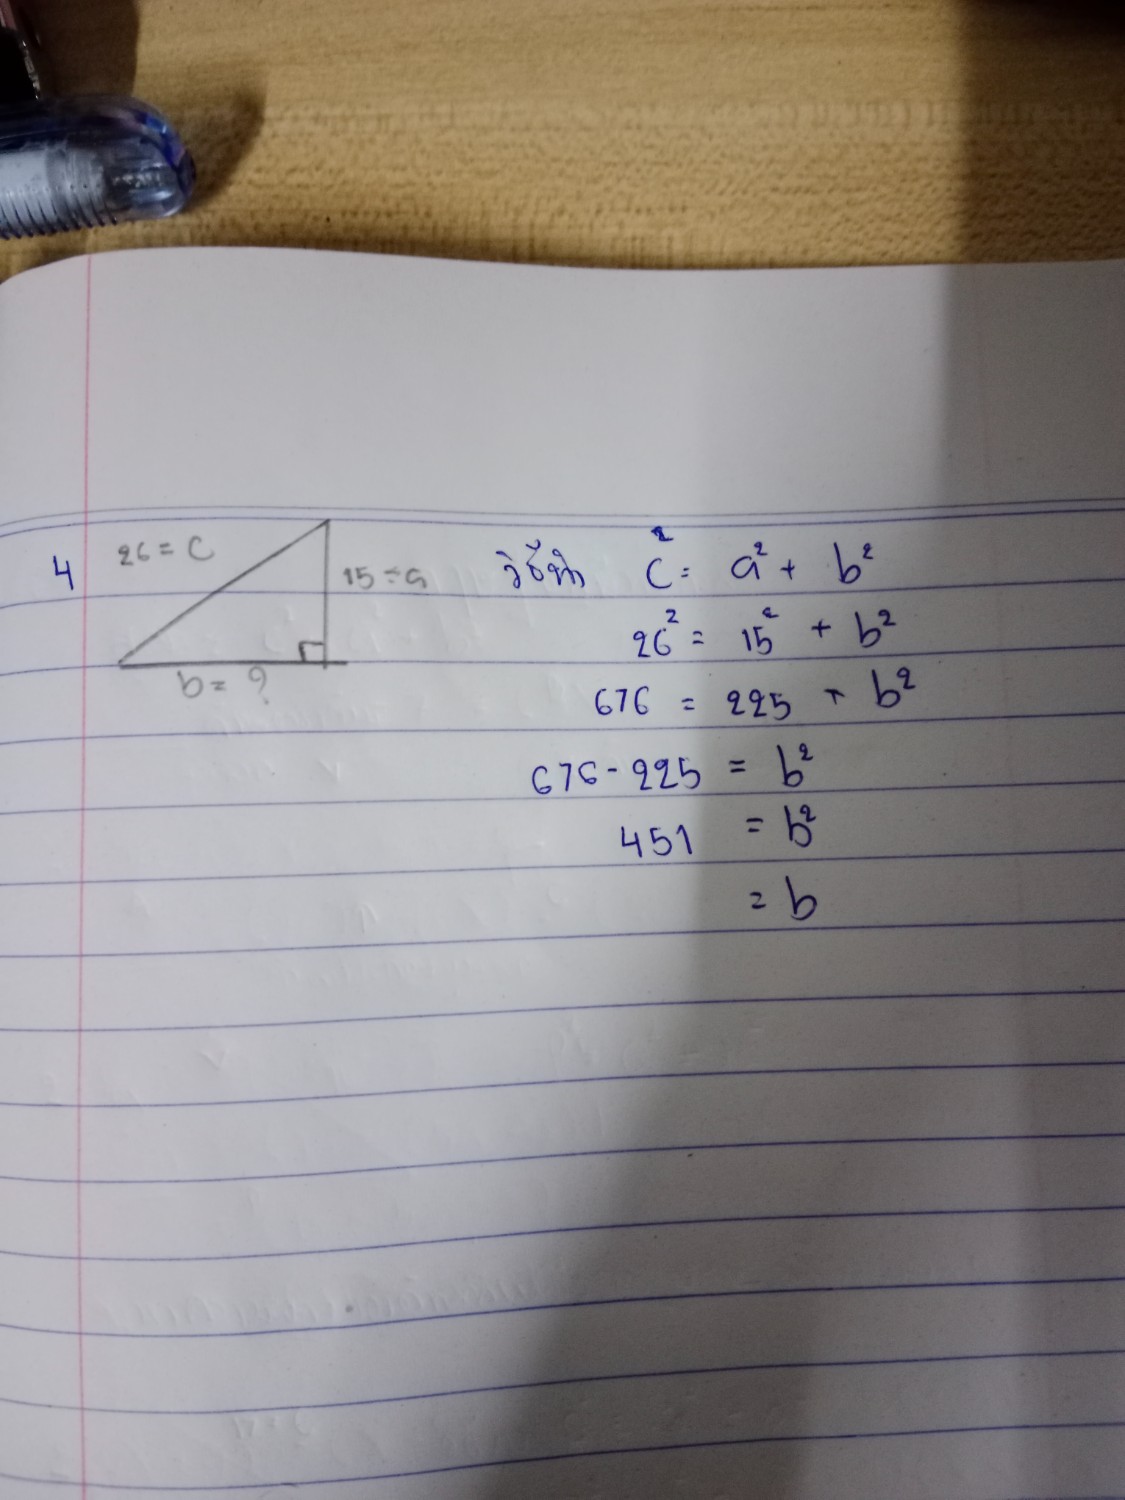 4
26 = C
15 = a
b = ?
วิธีทำ C² = a² + b²
26² = 15² + b²
676 = 225 + b²
676 - 225 = b²
451 = b²
= b